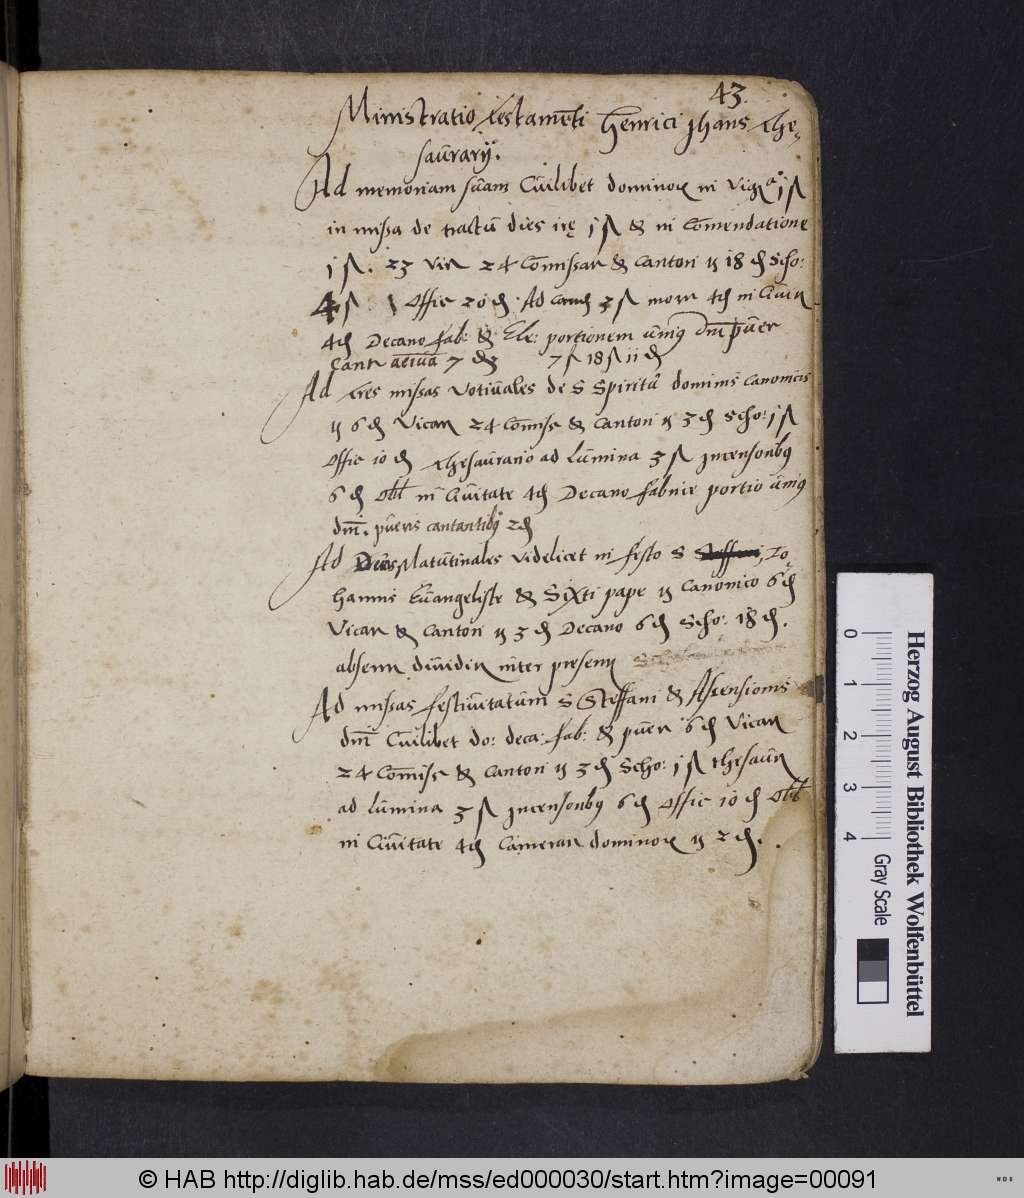 43.
Ministratio testamēti Henrici Jhans the,
saūrarij.
Ad memoriam suam Cuilibet dominor in Vig 1 ß
in missa de tractu dies irę 1 ß & in Comendatione
1 ß. 23 Vir 24 Comissar & Cantori ij 18 ₰ Scho:
4 ß Offic 20 ₰. Ad 3 ß 4 ₰ in Ciuit
4 ₰ Decano fab: & Ele: portionem unius dm puer
Cant 7 ₰ 7 ß 18 ß 11 ₰
Ad tres missas votiuales de S Spiritu dominis Canonicis
ij 6 ₰ Vicar 24 Comiss & Cantori ij 3 ₰ Scho: 1 ß
Offic 10 ₰ thesaurario ad lumina 3 ß Jncensoribus
6 ₰ Obl in Ciuitate 4 ₰ Decano fabrice portio unius
dm. pueris cantantibus 2 ₰
Ad Matutinales videlicet in festo S Steffani, Jo,
hannis Euangeliste & Sixti pape ij Canonico 6 ₰
Vicar & Cantori ij 3 ₰ Decano 6 ₰ Scho: 18 ₰.
absenn diuidin inter presenn
Ad missas festiuitatum S Steffani & Ascensionis
dm Cuilibet do: deca: fab: & puer 6 ₰ Vicar
24 Comiss & Cantori ij 3 ₰ Scho: 1 ß thesaur
ad lumina 3 ß Jncensoribus 6 ₰ Offic 10 ₰ Obl
in Ciuitate 4 ₰ Camerar dominor ij 2 ₰.
0 1 2 3 4
Gray Scale
Herzog August Bibliothek Wolfenbüttel
© HAB http://diglib.hab.de/mss/ed000030/start.htm?image=00091